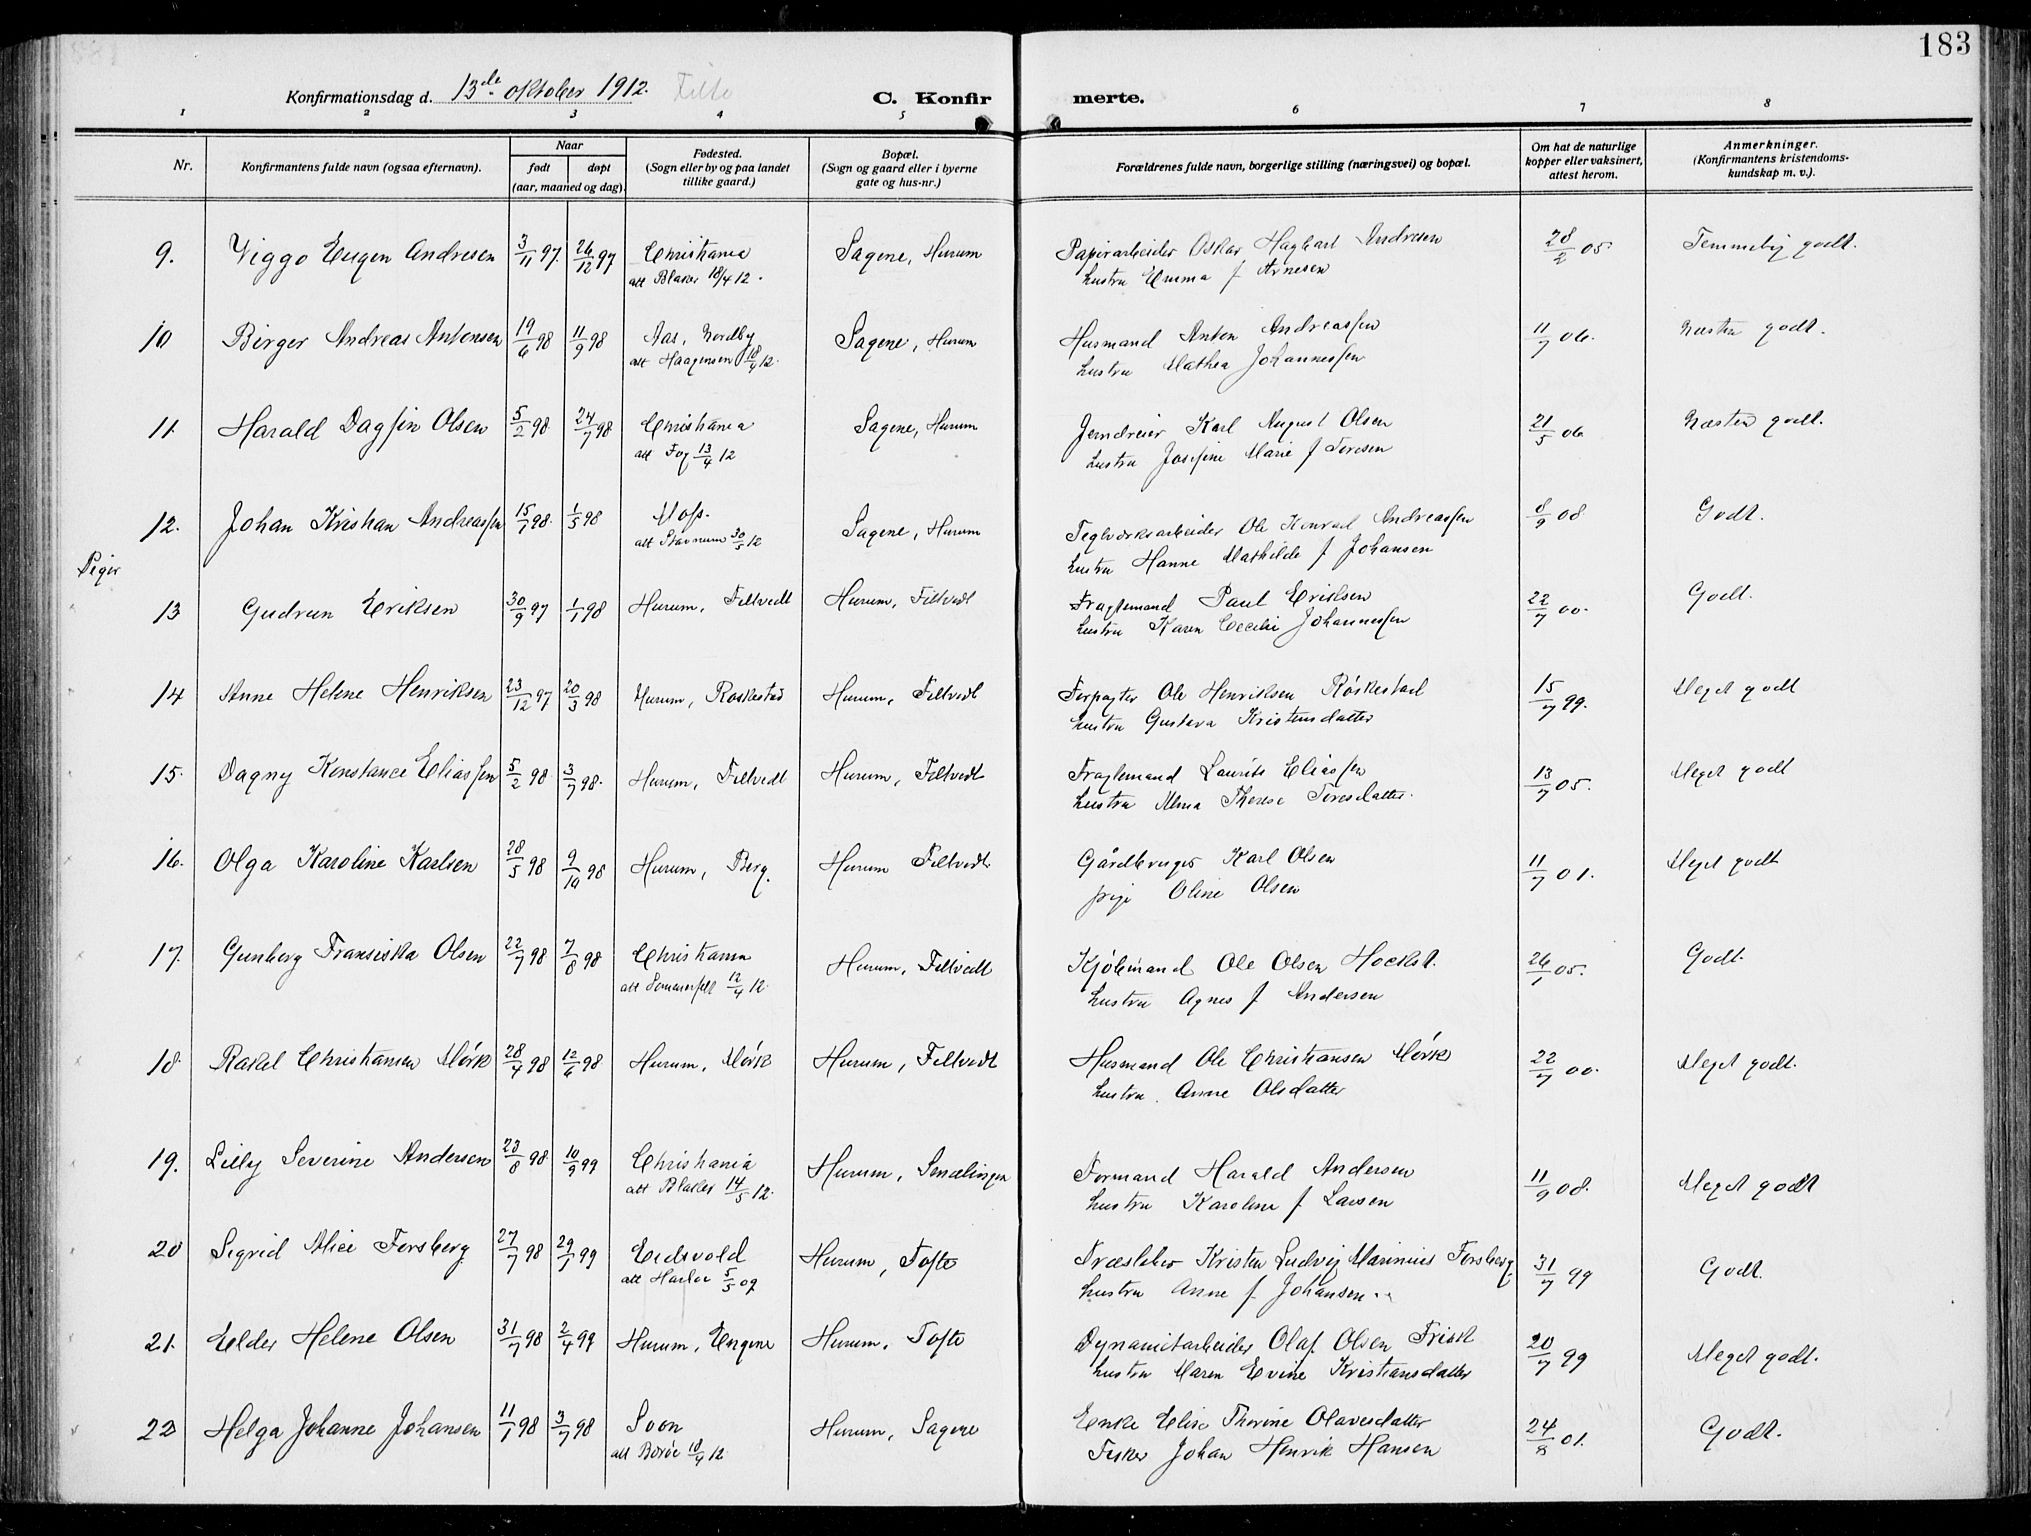 183
Konfirmationsdag d. 13de oktober 1912.
C. Konfirmerte.
1 2 3 4 5 6 7 8
Nr.
Konfirmantens fulde navn (ogsaa efternavn).
Naar
født døpt
(aar, maaned og dag).
Fødested.
(Sogn eller by og paa landet
tillike gaard.)
Bopæl.
(Sogn og gaard eller i byerne
gate og hus-nr.)
Forældrenes fulde navn, borgerlige stilling (næringsvei) og bopæl.
Om hat de naturlige
kopper eller vaksinert,
attest herom.
Anmerkninger.
(Konfirmantens kristendoms-
kundskap m. v.).
9. Viggo Eugen Andresen 3/11 97. 26/12 97 Christiania Sagene, Hurum Papirarbeider Oskar Hagbart Andresen 28/2 05. Temmelig godt.
att Blaker 18/4 12. hustru Emma f Arnesen
10 Birger Andreas Antonsen 19/6 98 11/9 98 Aas, Nordby Sagene, Hurum Husmand Anton Andreassen 11/7 06. Næsten godt.
att Haagensen 18/4 12. hustru Mathea Johannessen
11. Harald Dagfin Olsen 5/2 98 24/7 98 Christiania Sagene, Hurum Jerndreier Karl August Olsen 21/5 06 Næsten godt.
att Fog 13/4 12 hustru Josefine Marie f Toresen
12. Johan Kristian Andreassen 15/1 98. 1/5 98 Moss. Sagene, Hurum Teglverksarbeider Ole Konrad Andreassen 8/9 08 Godt.
att Stavnum 30/5 12 hustru Hanne Mathilde f Johansen
Piger
13 Gudrun Eriksen 30/9 97 1/1 98 Hurum, Filtvedt Hurum, Filtvedt Fragtemand Paul Eriksen 22/7 00. Godt.
hustru Karen Cecilie Johannessen
14 Anne Helene Henriksen 23/12 97 20/3 98 Hurum, Røskestad Hurum, Filtvedt Forpagter Ole Henriksen Røskestad 15/7 99. Meget godt
hustru Gustava Kristensdatter
15. Dagny Konstance Eliassen 5/2 98. 3/7 98. Hurum, Filtvedt Hurum, Filtvedt Fragtemand Laurits Eliassen 13/7 05. Meget godt
hustru Alma Therese Toresdatter.
16. Olga Karoline Karlsen 28/5 98 9/10 98 Hurum, Berg. Hurum Filtvedt Gårdbruger Karl Olsen 11/7 01. Meget godt
pige Oline Olsen
17. Gunborg Fransiska Olsen 22/7 98 7/8 98 Christiania Hurum, Filtvedt Kjøbmand Ole Olsen Hockst. 26/1 05. Godt.
att Sommerfelt 12/4 12. hustru Agnes f Andersen
18. Rakel Christiansen Mørk 28/4 98 12/6 98 Hurum, Mørk Hurum, Filtvedt Husmand Ole Christiansen Mørk 22/7 00. Meget godt.
hustru Anne Olsdatter
19. Lilly Severine Andersen 23/8 98 10/9 99 Christiania Hurum, Sendlingen Formand Harald Andersen 11/9 08. Meget godt
att Blaker 14/5 12. hustru Karoline f Larsen
20 Sigrid Alice Forsberg 27/7 98 29/1 99 Eidsvold Hurum, Tofte Træsleber Kristen Ludvig Marinius Forsberg 31/7 99 Godt.
att 5/5 09 hustru Anne f Johansen.
21. Elder Helene Olsen 31/7 98 2/4 99 Hurum, Engene Hurum, Tofte Dynamitarbeider Olaf Olsen Frisk 20/7 99 Meget godt.
hustru Maren Evine Kristiansdatter
22 Helga Johanne Johansen 11/1 98 3/7 98 Soon Hurum, Sagene Enke Elise Thorine Olavesdatter 24/8 01. Godt.
att Borge 18/4 12. Fisker Johan Henrik Hansen